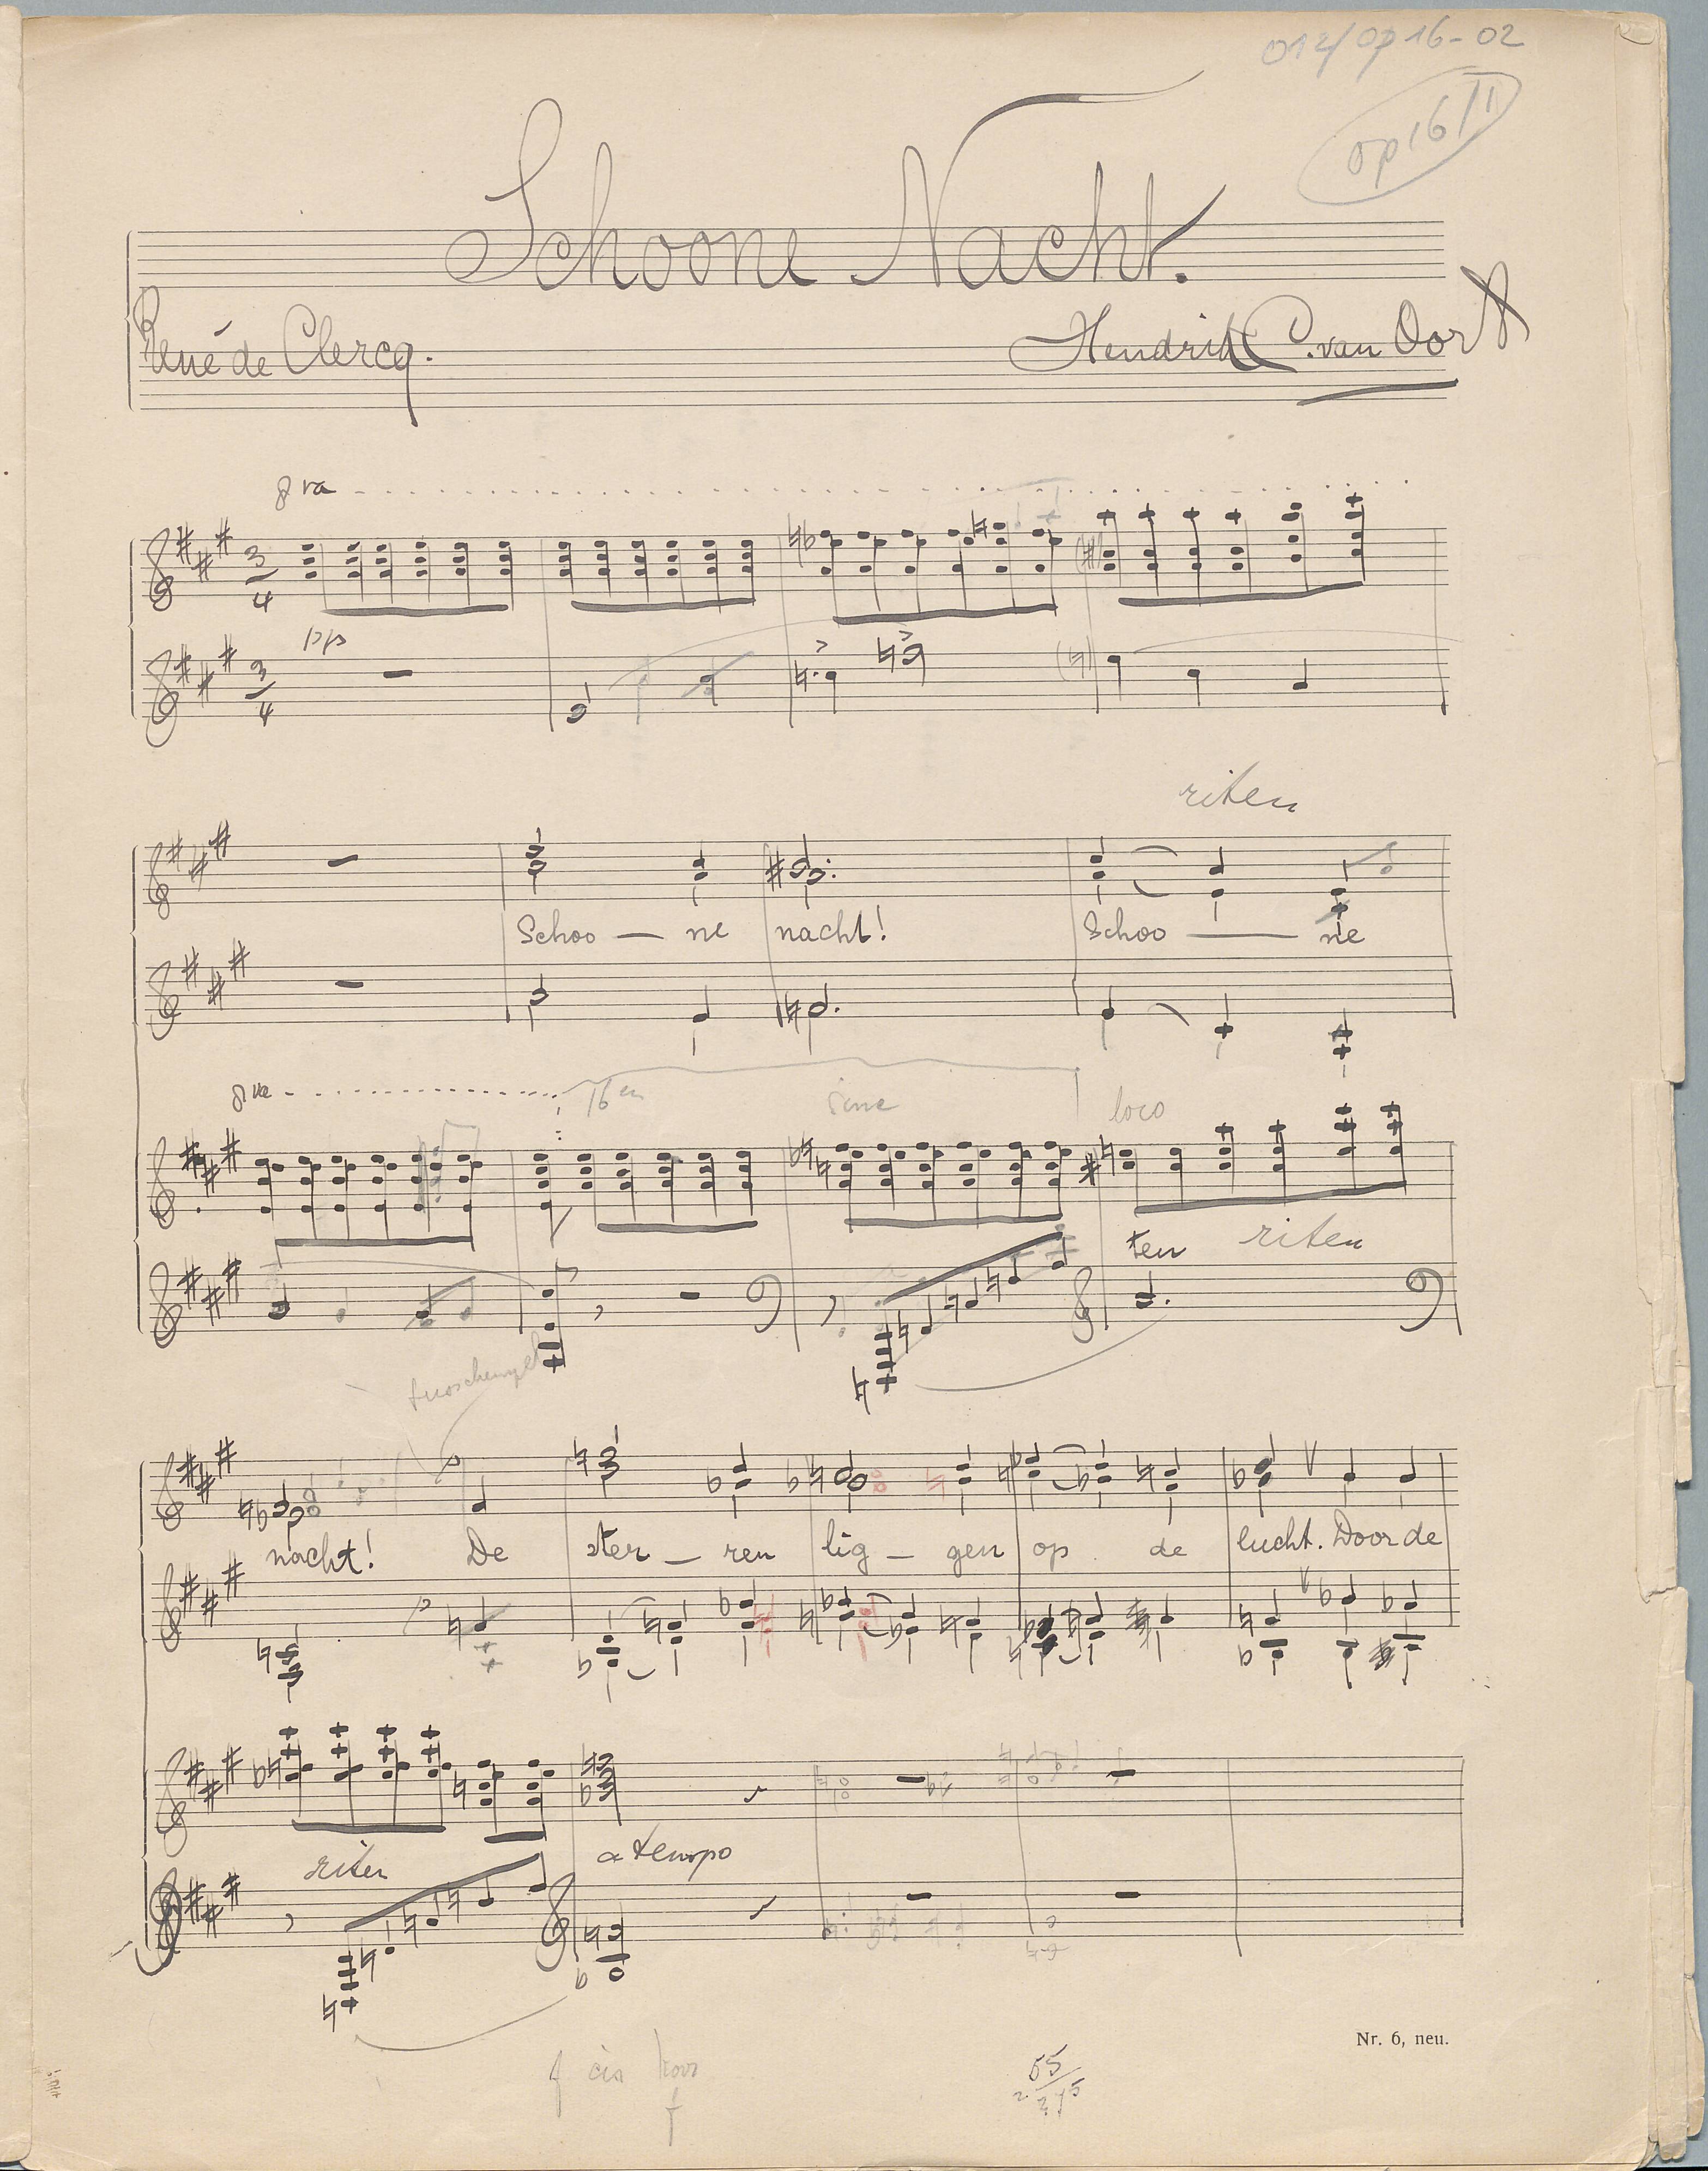 012/Op 16-02
Op 16/I
Schoone Nacht.
René de Clercq.
Hendrik C. van Oort
8va
3/4
pp
3/4
riten
Schoo — ne nacht! Schoo — ne
8va
16en
loco
ten riten
nacht! De ster - ren lig - gen op de lucht. Door de
riten
a tempo
Nr. 6, neu.
cis
55